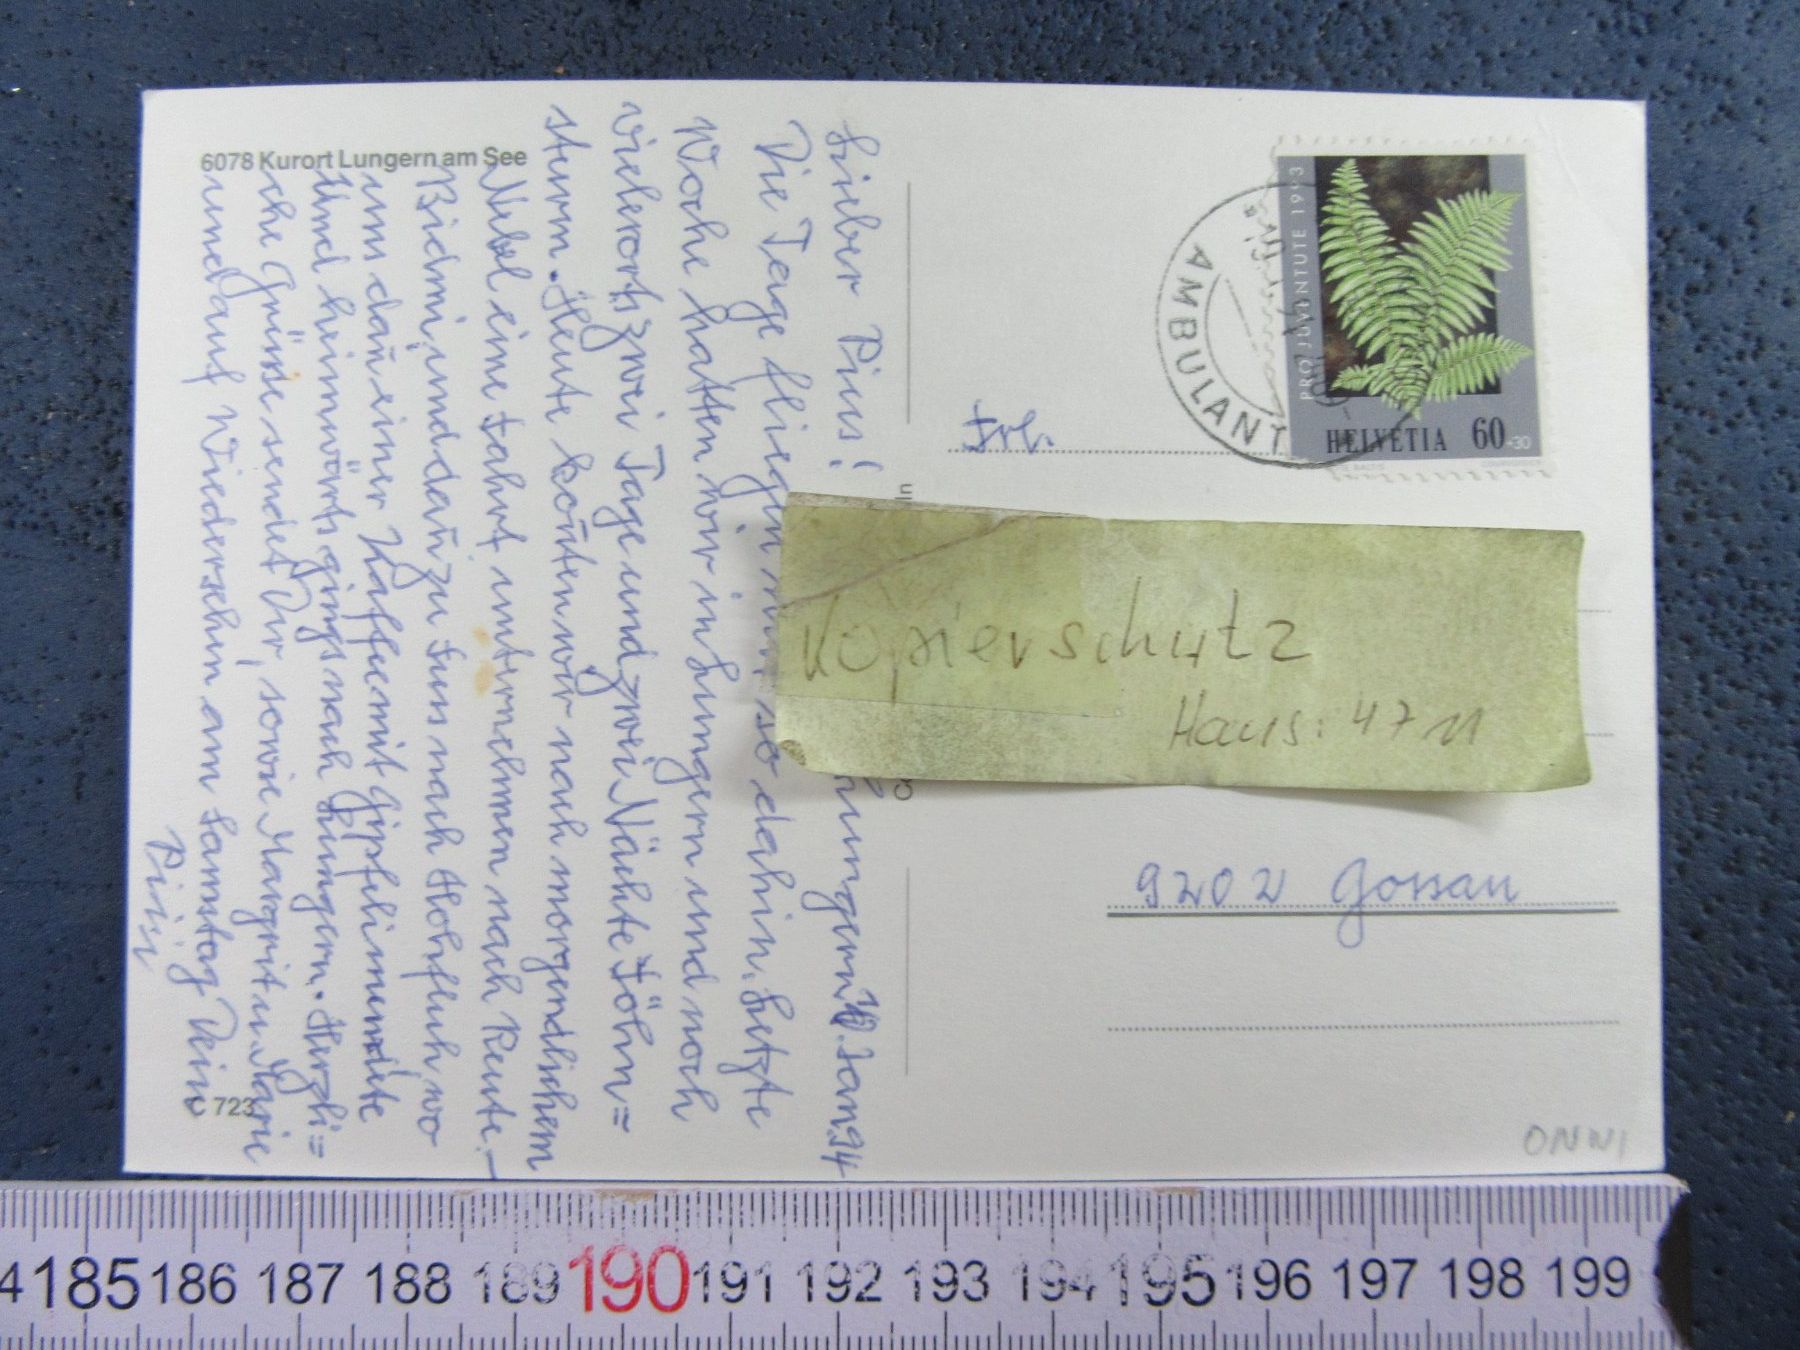 6078 Kurort Lungern am See
Lungern 10. Jan. 94
Lieber Pius!
Die Tage fliegen nur so dahin. Letzte
Woche hatten wir in Lungern und noch
vielerorts zwei Tage und zwei Nächte Föhn=
sturm. Heute kon̄ten wir nach morgendlichem
Nebel eine Fahrt unternehmen nach Reute.–
Bidmi, und dan̄ zu Fuss nach Hohfluh wo
um dan̄ einer Kaffee mit Gipfeli mundete
Und heimwärts gings nach Lungern. Herzli=
che Grüsse sendet Dir, sowie Margrit u. Marie
und auf Wiedersehen am Samstag Dein
Pius
C 723
PRO JUVENTUTE 1993
HELVETIA 60+30
AMBULANT
Frl.
Kopierschutz
Haus: 4711
9202 Gossau
ONWI
4 185 186 187 188 189 190 191 192 193 194 195 196 197 198 199